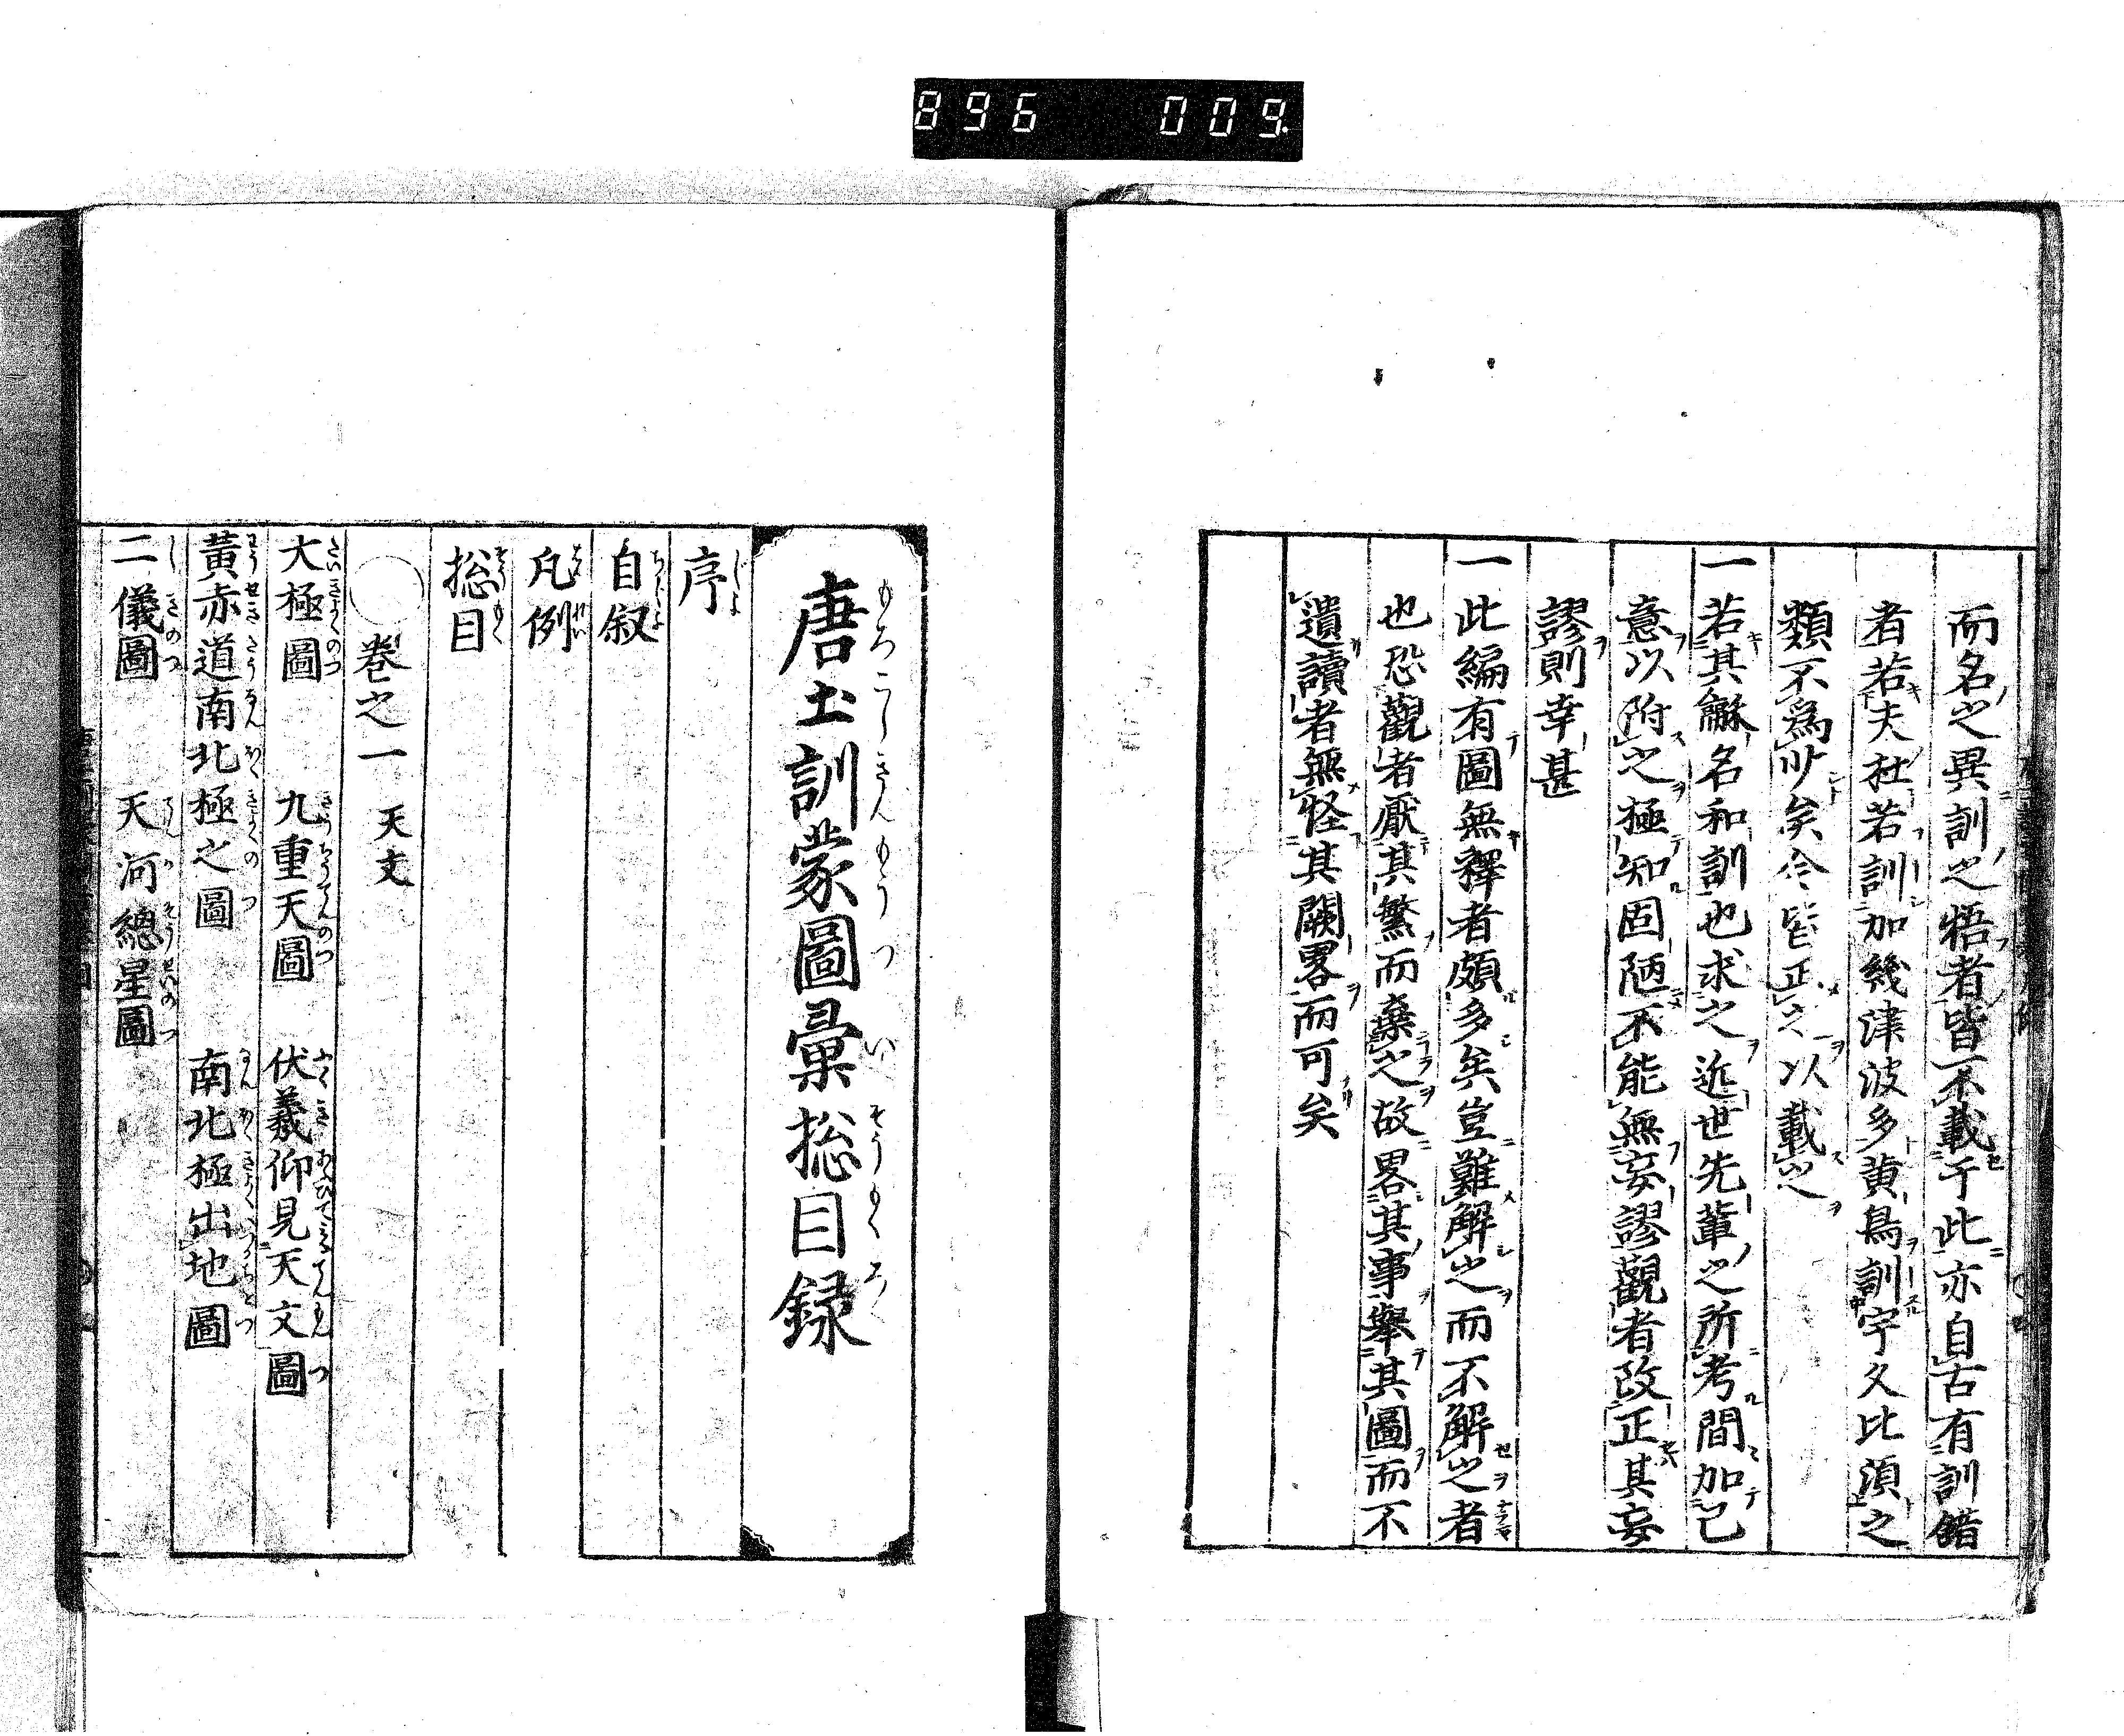 896 009
而名之異訓之牾者皆不載于此亦自古有訓錯
者若夫杜若訓加幾津波多黄鳥訓宇久比須之
類不為少矣今皆正之以載之
一若其龢名和訓也求之近世先輩之所考間加己
意以附之極知固陋不能無妄謬觀者改正其妄
謬則幸甚
一此編有圖無釋者頗多矣豈難解之而不解之者
也恐觀者厭其繁而棄之故畧其事舉其圖而不
遺讀者無怪其闕畧而可矣
唐土訓蒙圖彙総目録
序
自叙
凡例
総目
巻之一 天文
大極圖 九重天圖 伏羲仰見天文圖
黃赤道南北極之圖 南北極出地圖
二儀圖 天河總星圖